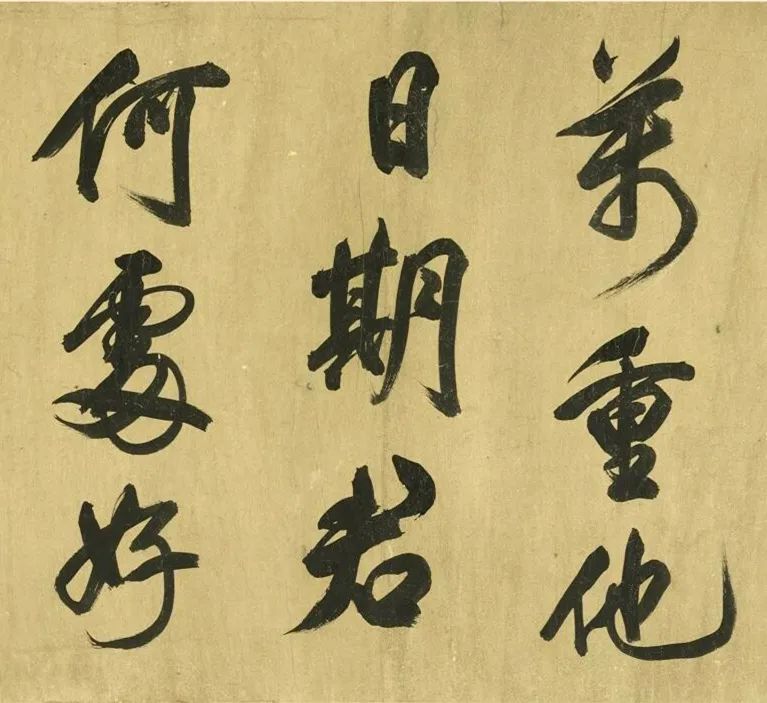 萬重他
日期君
何處好